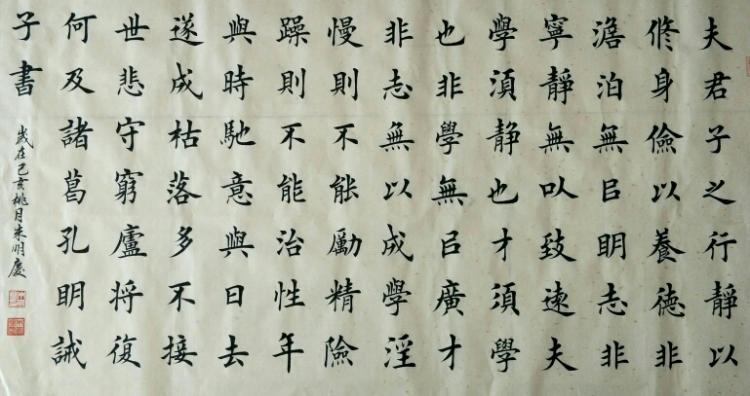 夫君子之行靜以
脩身儉以養德非
澹泊無㠯眀志非
寧靜無㕥致遠夫
學須靜也才須學
也非學無㠯廣才
非志無以成學淫
慢則不能勵精險
躁則不能治性年
與時馳意與日去
遂成枯落多不接
世悲守窮廬将復
何及諸葛孔眀誡
子書
歲在己亥桃月朱明慶